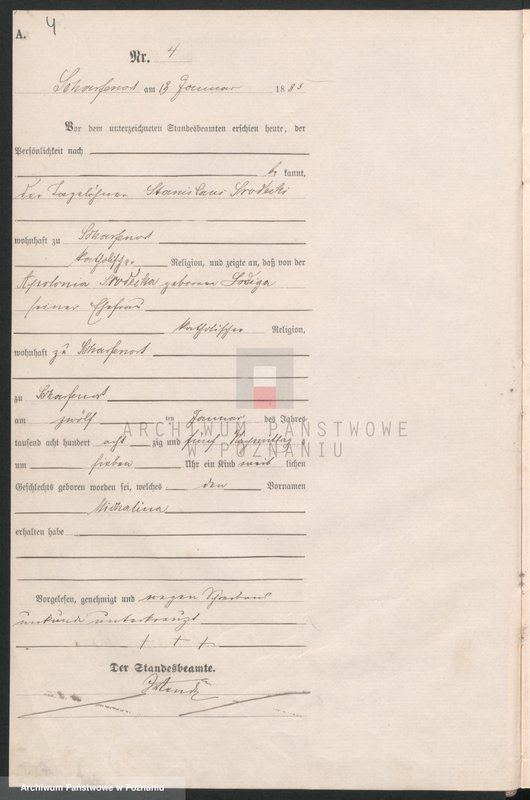 A. 4
Nr. 4
Scharfenort am 13 Januar 1885
Vor dem unterzeichneten Standesbeamten erschien heute, der
Persönlichkeit nach
be kannt,
der Tagelöhner Stanislaus Srodecki
wohnhaft zu Scharfenort
katholischer Religion, und zeigte an, daß von der
Apolonia Srodecka geborenen
seiner Ehefrau
katholischer Religion,
wohnhaft zu Scharfenort
zu Scharfenort
am zwölf ten Januar des Jahres
tausend acht hundert acht zig und fünf Nachmittag s
um sieben Uhr ein Kind weib lichen
Geschlechts geboren worden sei, welches den Vornamen
Michalina
erhalten habe
Vorgelesen, genehmigt und wegen Schreibens
unkunde unterkreuzt
+ + +
Der Standesbeamte.
ARCHIWUM PAŃSTWOWE
W POZNANIU
Archiwum Państwowe w Poznaniu